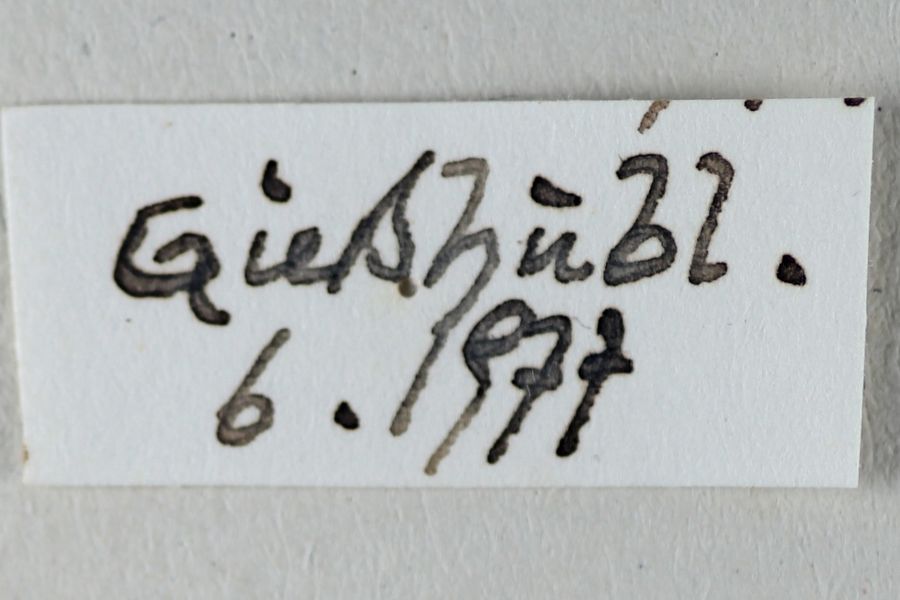 Gießhübl.
6. 1977